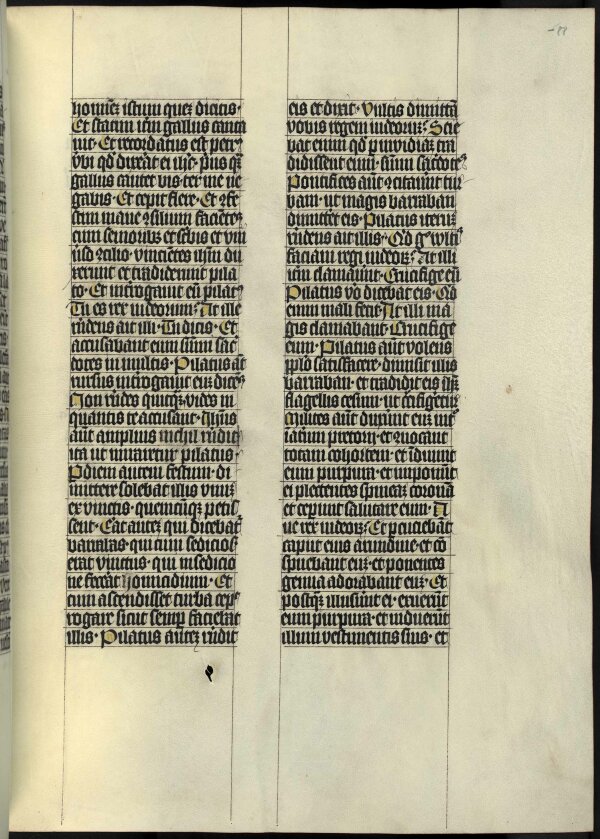 hominē istum quē dicitis·
Et statim iterū gallus canta
uit· Et recordatus est petrꝰ
vbi qd̄ dixerat ei ihc̄· prius q̄
gallus cantet bis· ter me ne
gabis· Et cepit flere· Et ꝯfe
stim mane ꝯsilium faciētes
cum seniorib₃ et scribis et vni
u̇so ꝯcilio· vincientes ihm̄ du
xerunt et tradiderunt pila
to· Et interogauit eū pilatꝰ
Tu es rex iudeorum· At ille
rn̄dens ait illi· Tu dicis· Et
accusabant eum sūmi sac̄
dotes in multis· Pilatus aūt
rursus interogauit eū dicēs
Non rn̄des quicq̄₃· vides in
quantis te accusant· Ihesus
aūt amplius nichil rn̄dit
ita ut miraretur pilatus·
P diem autem festum· di
mittere solebat illis vnū
ex vinctis· quemcūq₃ petis
sent· Erat autē qui dicebatʳ
barrabas· qui cum sedicios̄
erat vinctus· qui in sedicio
ne fecerat homicidium· Et
cum ascendisset turba cepit
rogare sicut semp̄ faciebat
illis· Pilatus autē rn̄dit
eis et dixit· Vultis dimittā
vobis regem iudeorū· Scie
bat enim qd̄ p inuidiam tra
didissent eum· sūmi sac̄dotes
Pontifices aūt ꝯcitauerūt tur
bam· ut magis barraban
dimittet eis· Pilatus iterū
rn̄dens ait illis· Qd̄ g° vultis
faciam regi iudeorū· At illi
iterū clamauerūt· Crucifige eū
Pilatus v̊o dicebat eis· Qd
enim mali fecit· At illi ma
gis clamabant· Crucifige
eum· Pilatus aūt volens
pp̄lo satisfacere· dimisit illis
barraban· et tradidit eis ihm̄
flagellis cesum· ut crucifigetʳ
Milites aūt duxerūt eū int̄
i atrium pretorij et ꝯuocant
totam cohortem· et īduunt
eum purpura· et imponūt
ei plectentes spineā coronā
et ceperunt salutare eum· A
ue rex iudeorū· Et p̄cuciebāt
caput eius arundine· et cō
spuebant eum· et ponentes
genua adorabant eū· Et
postq̄₃ illuserūt ei· exuerūt
eum purpura· et induerūt
illum vestimentis suis· et